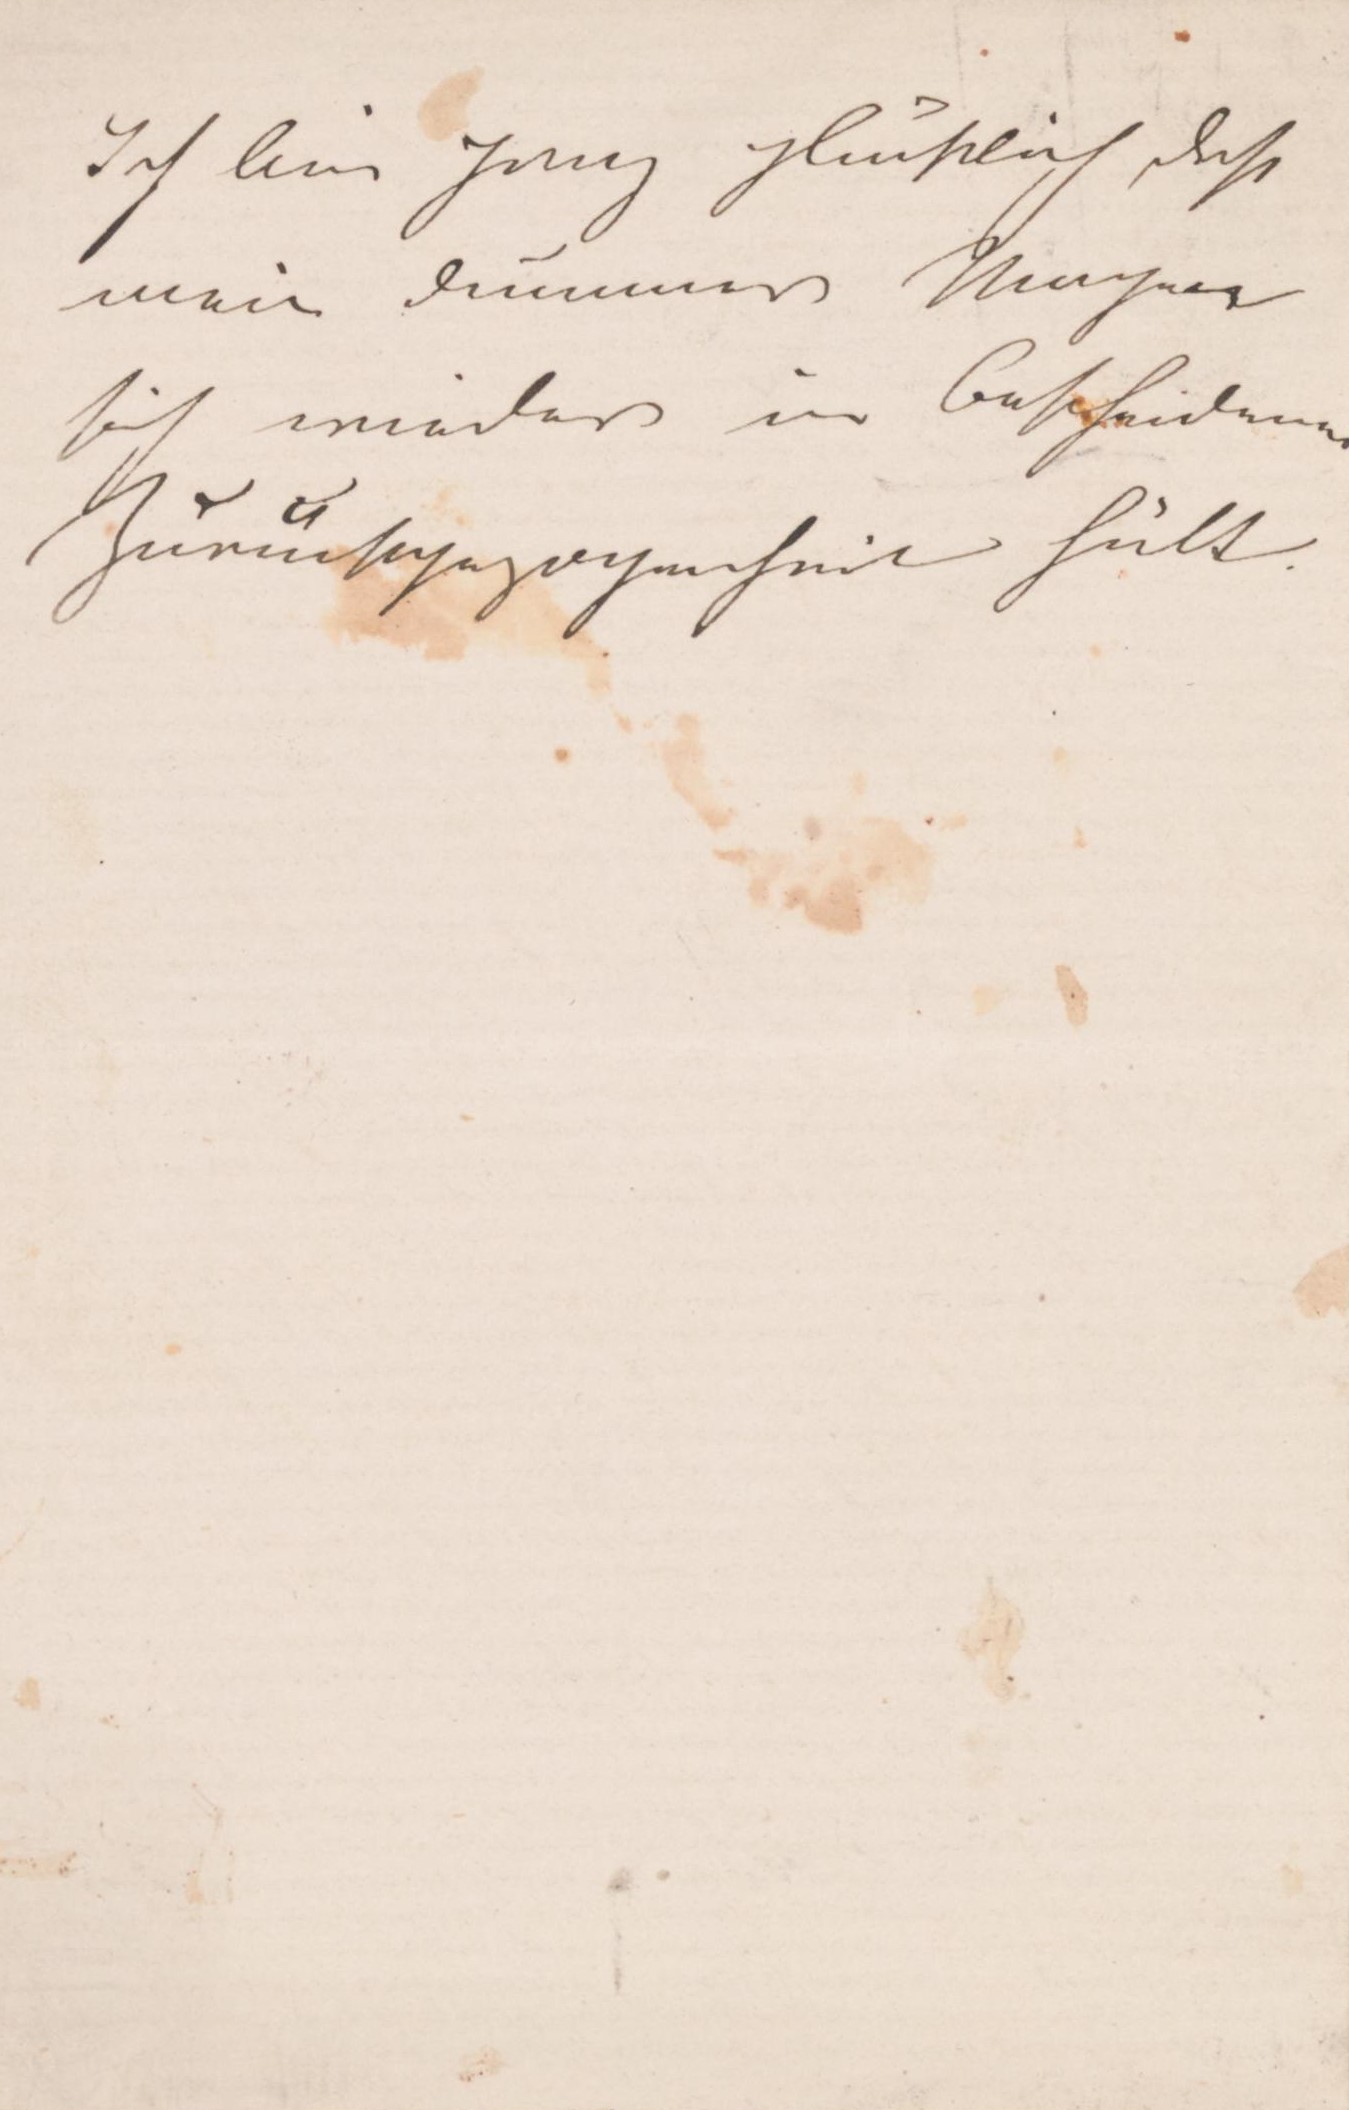 Ich bin ganz glücklich dass
mein dummer Magen
sich wieder in bescheidener
Zurückgezogenheit hält.